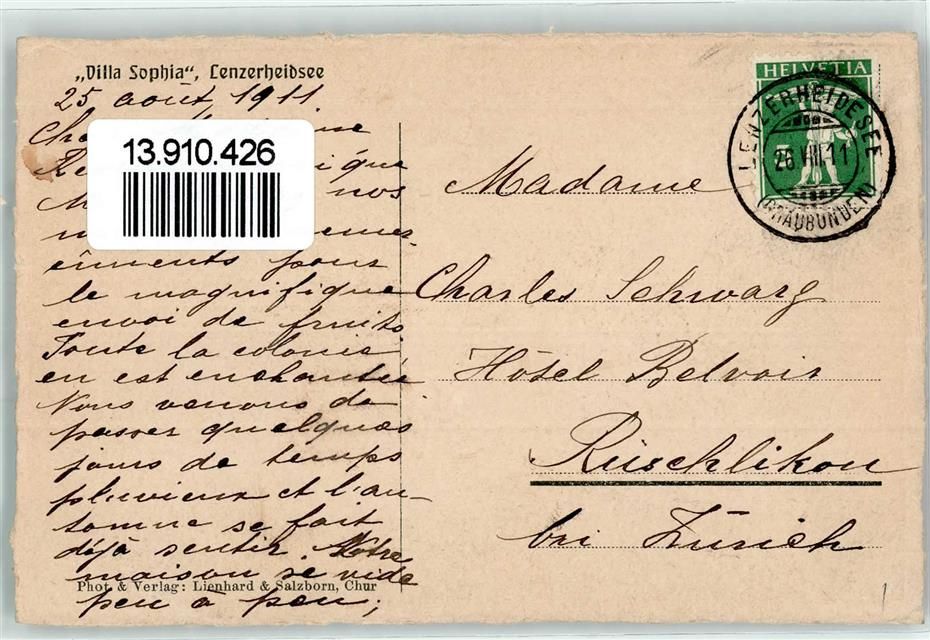 „Villa Sophia“, Lenzerheidsee
25 août, 1911.
13.910.426
nos
le magnifique
envoi de fruits
Toute la colonie
en est enchantée
Nous venons de
passer quelques
jours de temps
pluvieux et l'au-
tomne se fait
déjà sentir. Notre
maison se vide
peu à peu;
Phot. & Verlag: Lienhard & Salzborn, Chur
HELVETIA
5
LENZERHEIDESEE
26.VIII.11
(GRAUBÜNDEN)
Madame
Charles Schwarz
Hôtel Belvoir
Rüschlikon
bei Zürich